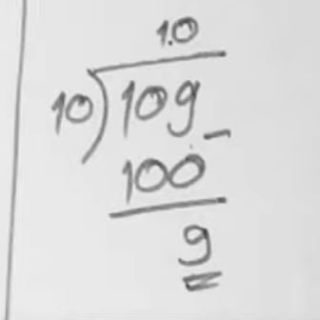 1.0
10)109
- 100
9